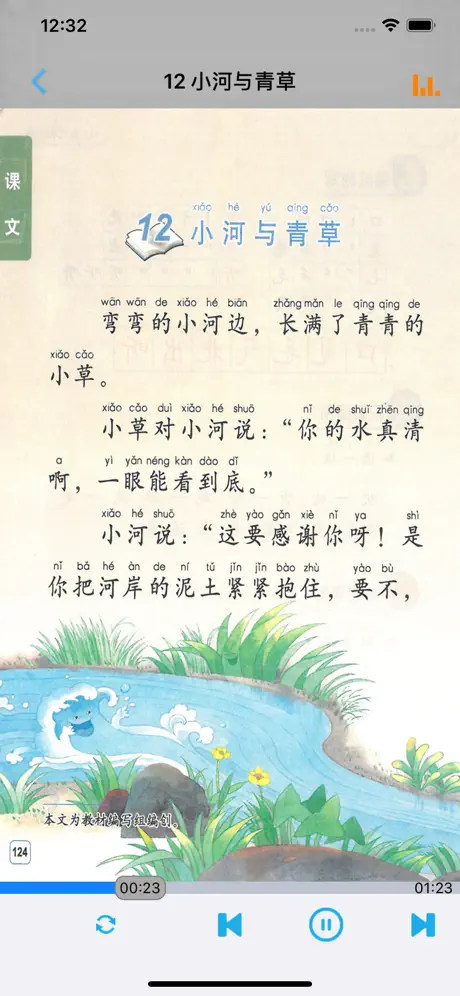 12:32
12 小河与青草
课
文
xiǎo hé yǔ qīng cǎo
12 小河与青草
wān wān de xiǎo hé biān zhǎng mǎn le qīng qīng de
弯弯的小河边，长满了青青的
xiǎo cǎo
小草。
xiǎo cǎo duì xiǎo hé shuō nǐ de shuǐ zhēn qīng
小草对小河说：“你的水真清
a yì yǎn néng kàn dào dǐ
啊，一眼能看到底。”
xiǎo hé shuō zhè yào gǎn xiè nǐ ya shì
小河说：“这要感谢你呀！是
nǐ bǎ hé àn de ní tǔ jǐn jǐn bào zhù yào bù
你把河岸的泥土紧紧抱住，要不，
本文为教材编写组编创。
124
00:23
01:23